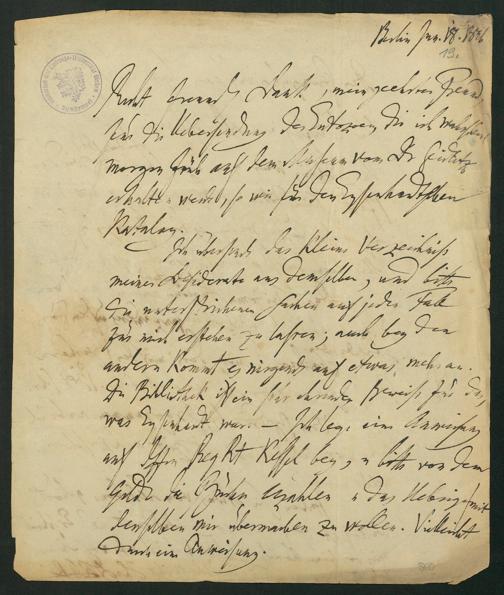 Berlin Jun. 18. 1826
19.
Recht Dank, mein geehrter Freund
für die Uebersendung der Entozoen, die ich
morgen früh auf dem Museum vom Dr
erhalten werde, so wie für den Eysenhardtschen
Katalog.
Ich übersende das kleine Verzeichniß
meiner Desiderata aus demselben, und bitte
die unterstrichenen Sachen auf jeden Fall
für mich erstehen zu lassen; auch bey den
andern kommt es nirgends auf etwas mehr an.
Die Bibliothek ist ein Beweis für das,
was Eysenhardt war. – Ich lege eine Anweisung
auf Hrn Reg Rt Kessel bey, u bitte von dem
Gelde die Bücher u das Uebrige mit
derselben mir übermachen zu wollen. Vielleicht
durch eine Anweisung.